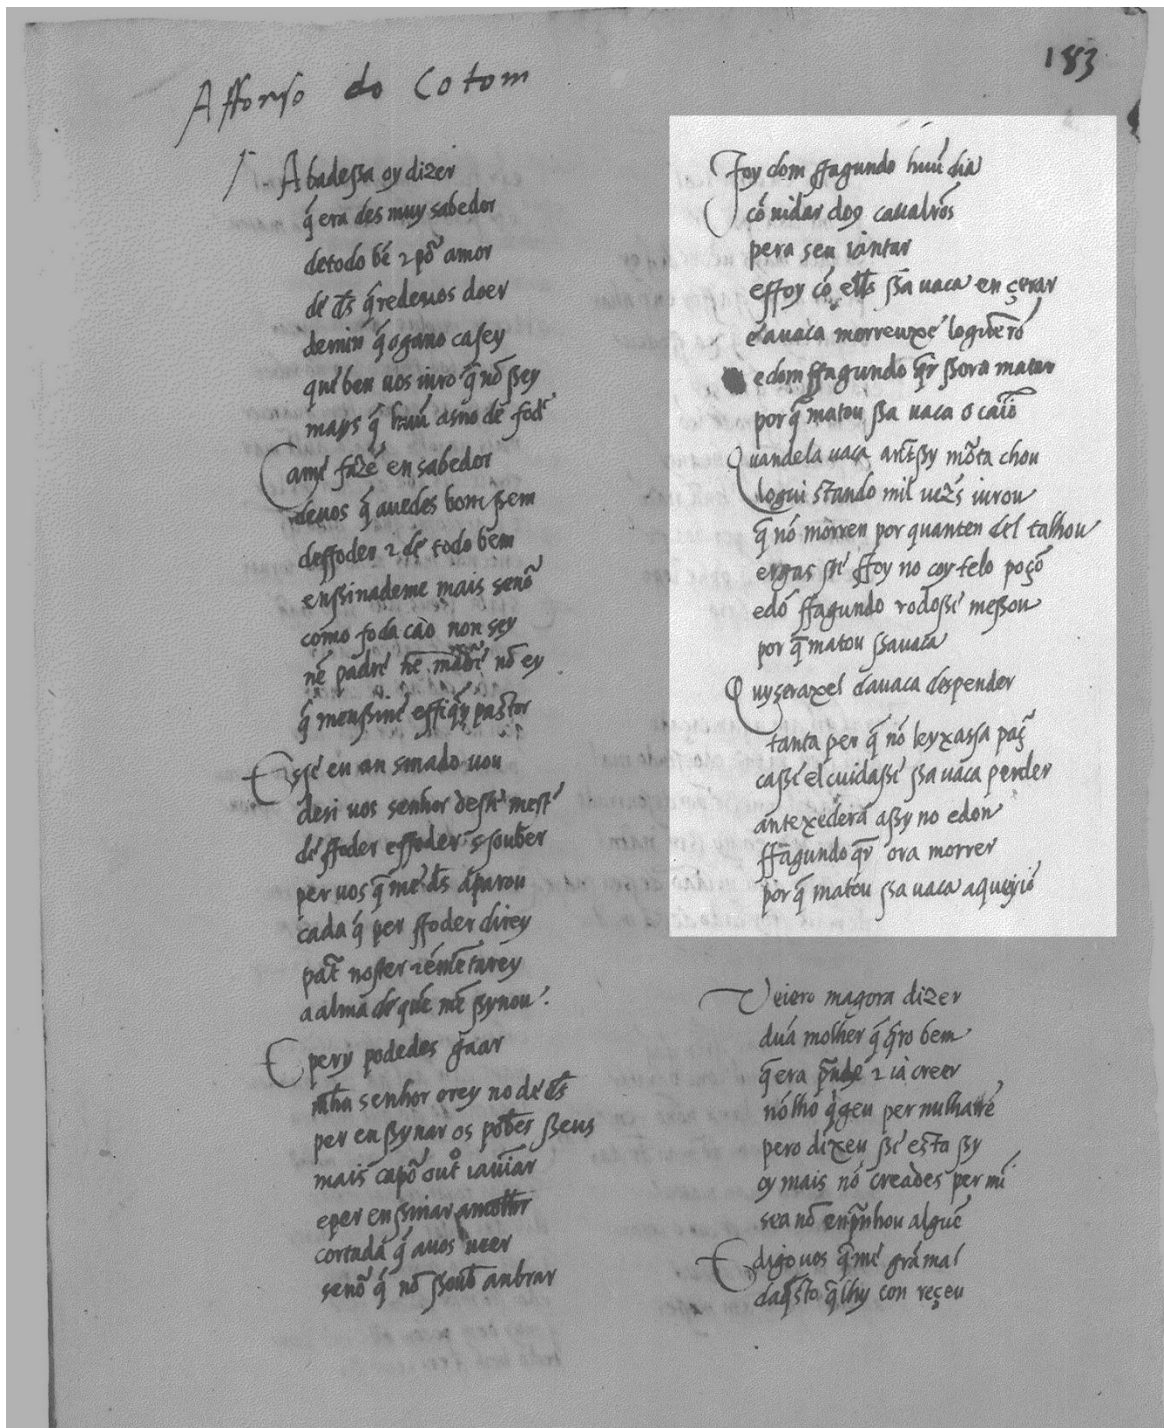 183
Affonso do Cotom
Abadessa oy dizer
q̃ era des muy sabedor
detodo bẽ ⁊ põ amor
de ds̃ q̃redeuos doer
demin q̃ ogano casey
que ben uos iuro q̃ nõ ssey
mays q̃ huũ asno de fod̃
Came fazẽ en sabedor
deuos q̃ auedes bom ssem
deffoder ⁊ de todo bem
enssinademe mais senõ
como foda cao non sey
nẽ padre nẽ madre nõ ey
q̃ menssine effiq̃y pastor
Esse eu an sinado uou
desi uos senhor deste mest̃
de ffoder effoder ssoub̃er
per uos q̃ me ds̃ aparou
cada q̃ per ffoder direy
pat̃ noster ⁊ emẽtarey
aalma de que me ssynou.
E pery podedes gaar
mha senhor orey no de ds̃
per enssynar os pob̃es sseus
mais capõ out̃ iauuar
eper enssinar amolher
cortada q̃ auos ueer
senõ q̃ nõ ssoub̃ anbrar
Foy dom ffagundo huũ dia
cõ uidar doy caualr̃os
pera seu iantar
effoy cõ el̃ls ssa uaca en çerar
eauaca morreuxe loguer̃o
edom ffagundo q̃r ssora matar
por q̃ matou ssa uaca o caiõ
Quandela uaca antssy mõta chou
logui stando mil uezs̃ iurou
q̃ nõ morreu por quanten del talhou
ergas sse ffoy no coytelo poçõ
edõ ffagundo rodosse messou
por q̃ matou ssauaca
Quyseraxel dauaca despender
tanta per q̃ nõ leyxassa paç̃
casse el cuidasse ssa uaca perder
antexedera assy no edon
ffagundo q̃r ora morrer
por q̃ matou ssa uaca aqueyiõ
Veiero magora dizer
duã molher q̃ q̃ro bem
q̃ era p̃nhe ⁊ ia creer
nõlho q̃geu per nulharrẽ
pero dixeu sse esta ssy
oy mais nõ creades per mi
sea nõ enp̃nhou alguẽ
E digouos q̃ me grã mal
daq̃sto q̃ lhy con reçeu